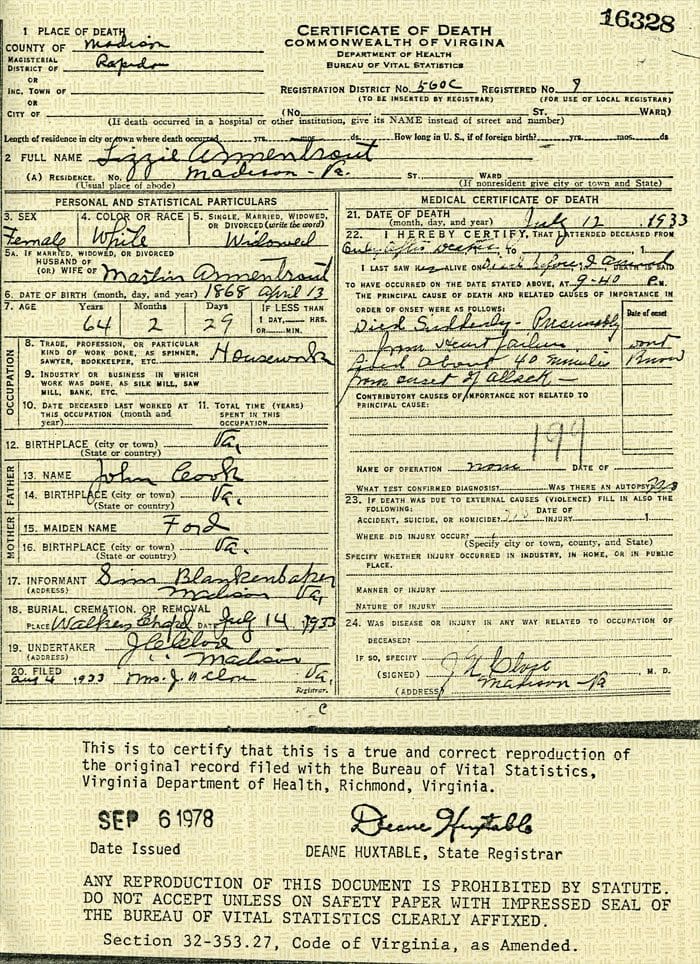 16328
1 PLACE OF DEATH
COUNTY OF Madison
MAGISTERIAL
DISTRICT OF Rapidan
OR
INC. TOWN OF
OR
CITY OF
CERTIFICATE OF DEATH
COMMONWEALTH OF VIRGINIA
DEPARTMENT OF HEALTH
BUREAU OF VITAL STATISTICS
REGISTRATION DISTRICT NO. 560C REGISTERED NO. 9
(TO BE INSERTED BY REGISTRAR) (FOR USE OF LOCAL REGISTRAR)
(No. ST. WARD)
(If death occurred in a hospital or other institution, give its NAME instead of street and number)
Length of residence in city or town where death occurred yrs. mos. ds. How long in U. S., if of foreign birth? yrs. mos. ds.
2 FULL NAME Lizzie Armentrout
(A) RESIDENCE. No. Madison - Va. ST. WARD
(Usual place of abode) (If nonresident give city or town and State)
PERSONAL AND STATISTICAL PARTICULARS
3. SEX 4. COLOR OR RACE 5. SINGLE, MARRIED, WIDOWED,
OR DIVORCED (write the word)
Female White Widowed
5A. IF MARRIED, WIDOWED, OR DIVORCED
HUSBAND OF
(OR) WIFE OF Martin Armentrout
6. DATE OF BIRTH (month, day, and year) 1868 April 13
7. AGE Years Months Days IF LESS THAN
1 DAY, HRS.
OR MIN.
64 2 29
OCCUPATION
8. TRADE, PROFESSION, OR PARTICULAR
KIND OF WORK DONE, AS SPINNER,
SAWYER, BOOKKEEPER, ETC. Housework
9. INDUSTRY OR BUSINESS IN WHICH
WORK WAS DONE, AS SILK MILL, SAW
MILL, BANK, ETC.
10. DATE DECEASED LAST WORKED AT
THIS OCCUPATION (month and
year)
11. TOTAL TIME (YEARS)
SPENT IN THIS
OCCUPATION
12. BIRTHPLACE (city or town) Va.
(State or country)
FATHER
13. NAME John Cook
14. BIRTHPLACE (city or town) Va.
(State or country)
MOTHER
15. MAIDEN NAME Ford
16. BIRTHPLACE (city or town) Va.
(State or country)
17. INFORMANT Blankenbaker
(ADDRESS) Madison Va.
18. BURIAL, CREMATION, OR REMOVAL
PLACE Walkers Chapel DATE July 14, 1933
19. UNDERTAKER
(ADDRESS) Madison
20. FILED Aug 4 1933 Mrs. J. Va.
Registrar.
MEDICAL CERTIFICATE OF DEATH
21. DATE OF DEATH
(month, day, and year) July 12, 1933
22. I HEREBY CERTIFY, THAT I ATTENDED DECEASED FROM
Only After Death TO
I LAST SAW H ALIVE ON Died before I Arrived DEATH IS SAID
TO HAVE OCCURRED ON THE DATE STATED ABOVE, AT 9-40 P.M.
THE PRINCIPAL CAUSE OF DEATH AND RELATED CAUSES OF IMPORTANCE IN
ORDER OF ONSET WERE AS FOLLOWS: Date of onset
Died Suddenly - Presumably
from heart failure dont
Lived about 40 minutes Know
from onset of attack -
CONTRIBUTORY CAUSES OF IMPORTANCE NOT RELATED TO
PRINCIPAL CAUSE:
199
NAME OF OPERATION none DATE OF
WHAT TEST CONFIRMED DIAGNOSIS? WAS THERE AN AUTOPSY? no
23. IF DEATH WAS DUE TO EXTERNAL CAUSES (VIOLENCE) FILL IN ALSO THE
FOLLOWING:
ACCIDENT, SUICIDE, OR HOMICIDE? no DATE OF
INJURY 1
WHERE DID INJURY OCCUR?
(Specify city or town, county, and State)
SPECIFY WHETHER INJURY OCCURRED IN INDUSTRY, IN HOME, OR IN PUBLIC
PLACE.
MANNER OF INJURY
NATURE OF INJURY
24. WAS DISEASE OR INJURY IN ANY WAY RELATED TO OCCUPATION OF
DECEASED?
IF SO, SPECIFY
(SIGNED) M. D.
(ADDRESS) Madison - Va
C
This is to certify that this is a true and correct reproduction of
the original record filed with the Bureau of Vital Statistics,
Virginia Department of Health, Richmond, Virginia.
SEP 6 1978 Deane Huxtable
Date Issued DEANE HUXTABLE, State Registrar
ANY REPRODUCTION OF THIS DOCUMENT IS PROHIBITED BY STATUTE.
DO NOT ACCEPT UNLESS ON SAFETY PAPER WITH IMPRESSED SEAL OF
THE BUREAU OF VITAL STATISTICS CLEARLY AFFIXED.
Section 32-353.27, Code of Virginia, as Amended.